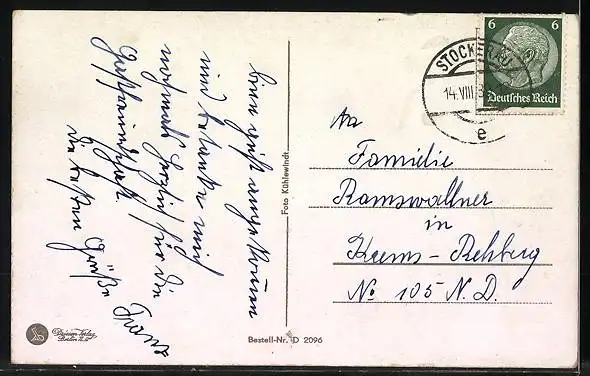 bin gut angekommen
und bedanke mich
nochmals herzlich für die
Gastfreundschaft.
die besten Grüße
Franz
Foto Kühlewindt
Bestell-Nr. D 2096
Berlin
6 6
Deutsches Reich
STOCKERAU
14.VIII.3
e
An
Familie
Ramswallner
in
Krems-Rehberg
No 105 N.D.